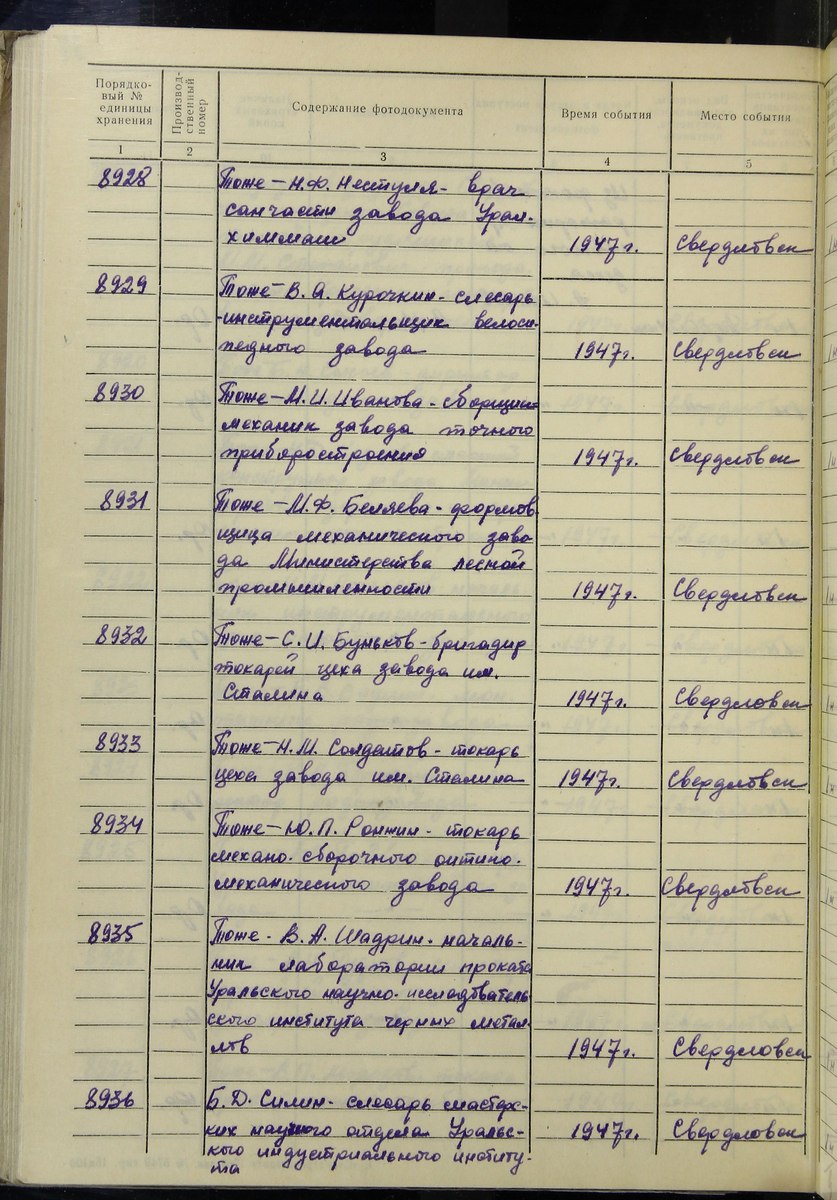 Порядко-
вый №
единицы
хранения
Производ-
ственный
номер
Содержание фотодокумента
Время события
Место события
1 2 3 4 5
8928 Тоже – Н.Ф. Нестуля - врач
санчасти завода Урал-
химмаш 1947 г. Свердловск
8929 Тоже – В.А. Курочкин - слесарь
-инструментальщик велоси-
педного завода 1947 г. Свердловск
8930 Тоже – М.И. Иванова - сборщик
механик завода точного
приборостроения 1947 г. Свердловск
8931 Тоже – М.Ф. Беляева - формов-
щица механического заво-
да Министерства лесной
промышленности 1947 г. Свердловск
8932 Тоже – С.И. Буньков - бригадир
токарей цеха завода им.
Сталина 1947 г. Свердловск
8933 Тоже – Н.М. Солдатов - токарь
цеха завода им. Сталина 1947 г. Свердловск
8934 Тоже – Ю.П. Ронжин - токарь
механо-сборочного оптико-
механического завода 1947 г. Свердловск
8935 Тоже - В.А. Шадрин - началь-
ник лаборатории проката
Уральского научно-исследователь-
ского института черных метал-
лов 1947 г. Свердловск
8936 Б.Д. Силин - слесарь мастерс-
ких научного отдела Уральс- 1947 г. Свердловск
кого индустриального институ-
та